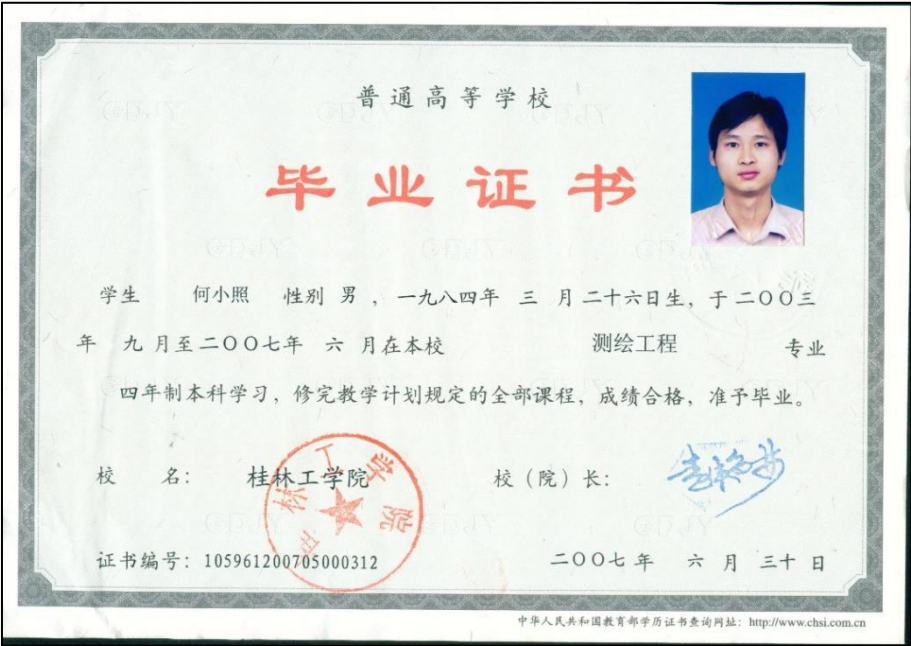 普通高等学校
毕业证书
学生 何小照 性别 男 ，一九八四年 三 月 二十六日生，于 二〇〇三
年 九 月至 二〇〇七年 六 月在本校 测绘工程 专业
四年制本科学习，修完教学计划规定的全部课程，成绩合格，准予毕业。
校 名： 桂林工学院 校（院）长：
证书编号：105961200705000312 二〇〇七 年 六 月 三十 日
中华人民共和国教育部学历证书查询网址：http://www.chsi.com.cn